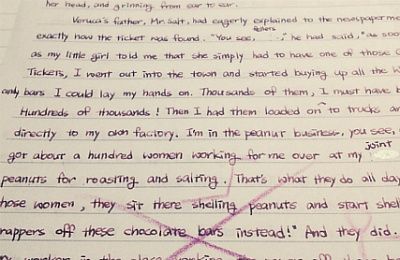 her head, and grinning from ear to ear.
Veruca's father, Mr. Salt, had eagerly explained to the newspaperme
exactly how the ticket was found. "You see, fellers," he had said, "as soon
as my little girl told me that she simply had to have one of those G
Tickets, I went out into the town and started buying up all the W
andy bars I could lay my hands on. Thousands of them, I must have b
Hundreds of thousands! Then I had them loaded on to trucks an
directly to my own factory. I'm in the peanut business, you see,
got about a hundred women working for me over at my joint
peanuts for roasting and salting. That's what they do all day
hose women, they sit there shelling peanuts and start shel
rappers off these chocolate bars instead!" And they did.